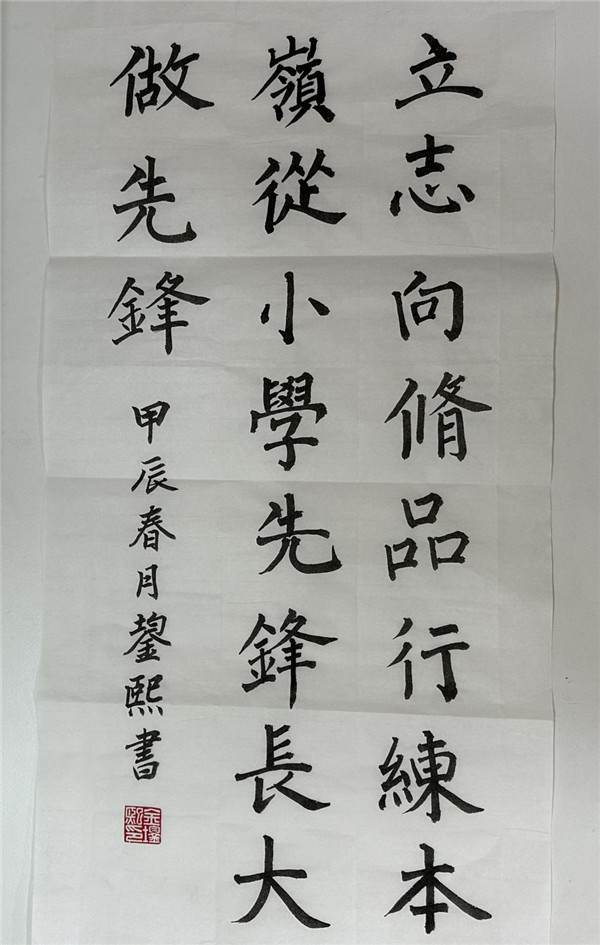 立志向脩品行練本
嶺從小學先鋒長大
做先鋒
甲辰春月鋆熙書